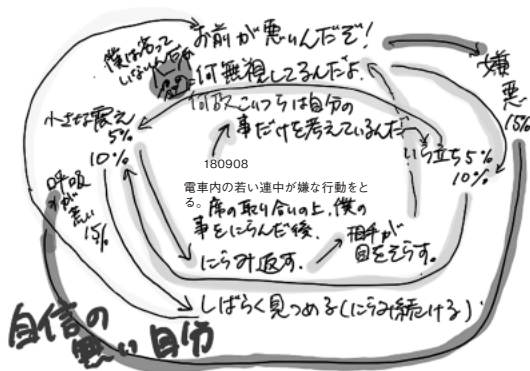 お前が悪いんだぞ!
僕は劣って
いないんだぞ
何無視してるんだよ
何故こいつらは自分の
事だけを考えているんだ
嫌
悪
15%
小さな震え
5%
10%
いら立ち5%
10%
呼吸
が
荒い
15%
180908
電車内の若い連中が嫌な行動をと
る。
席の取り合いの上、僕の
事をにらんだ後、
にらみ返す。
相手が
目をそらす。
しばらく見つめる(にらみ続ける)
自信の
悪い自分